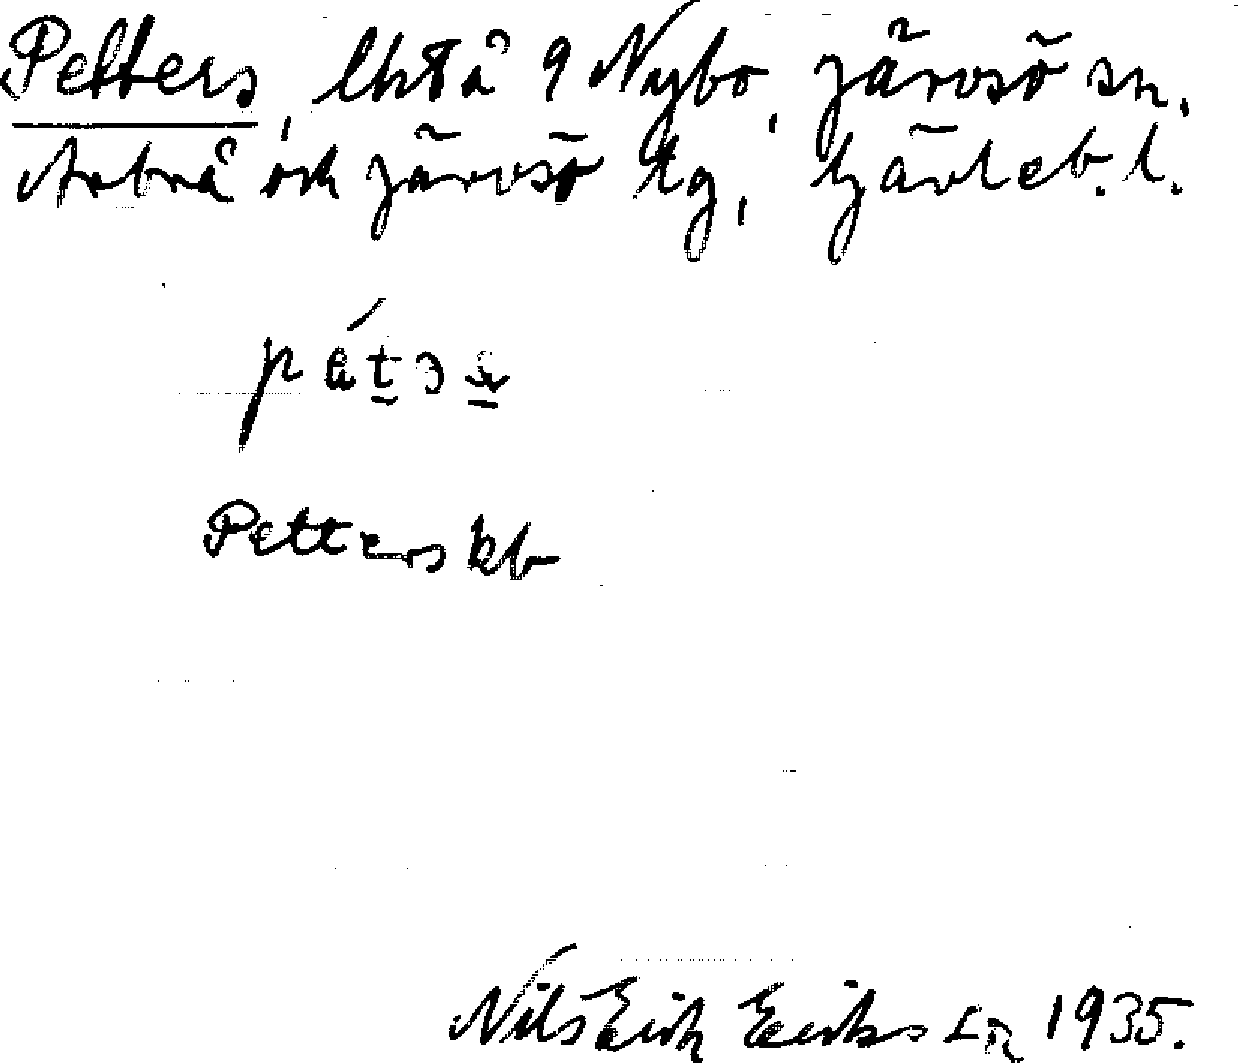 Petters, å 9 Nybo, Järvsö sn.
Arbrå och Järvsö tg, Gävleb. l.
Petters kb
Nils Erik Eriksson 1935.